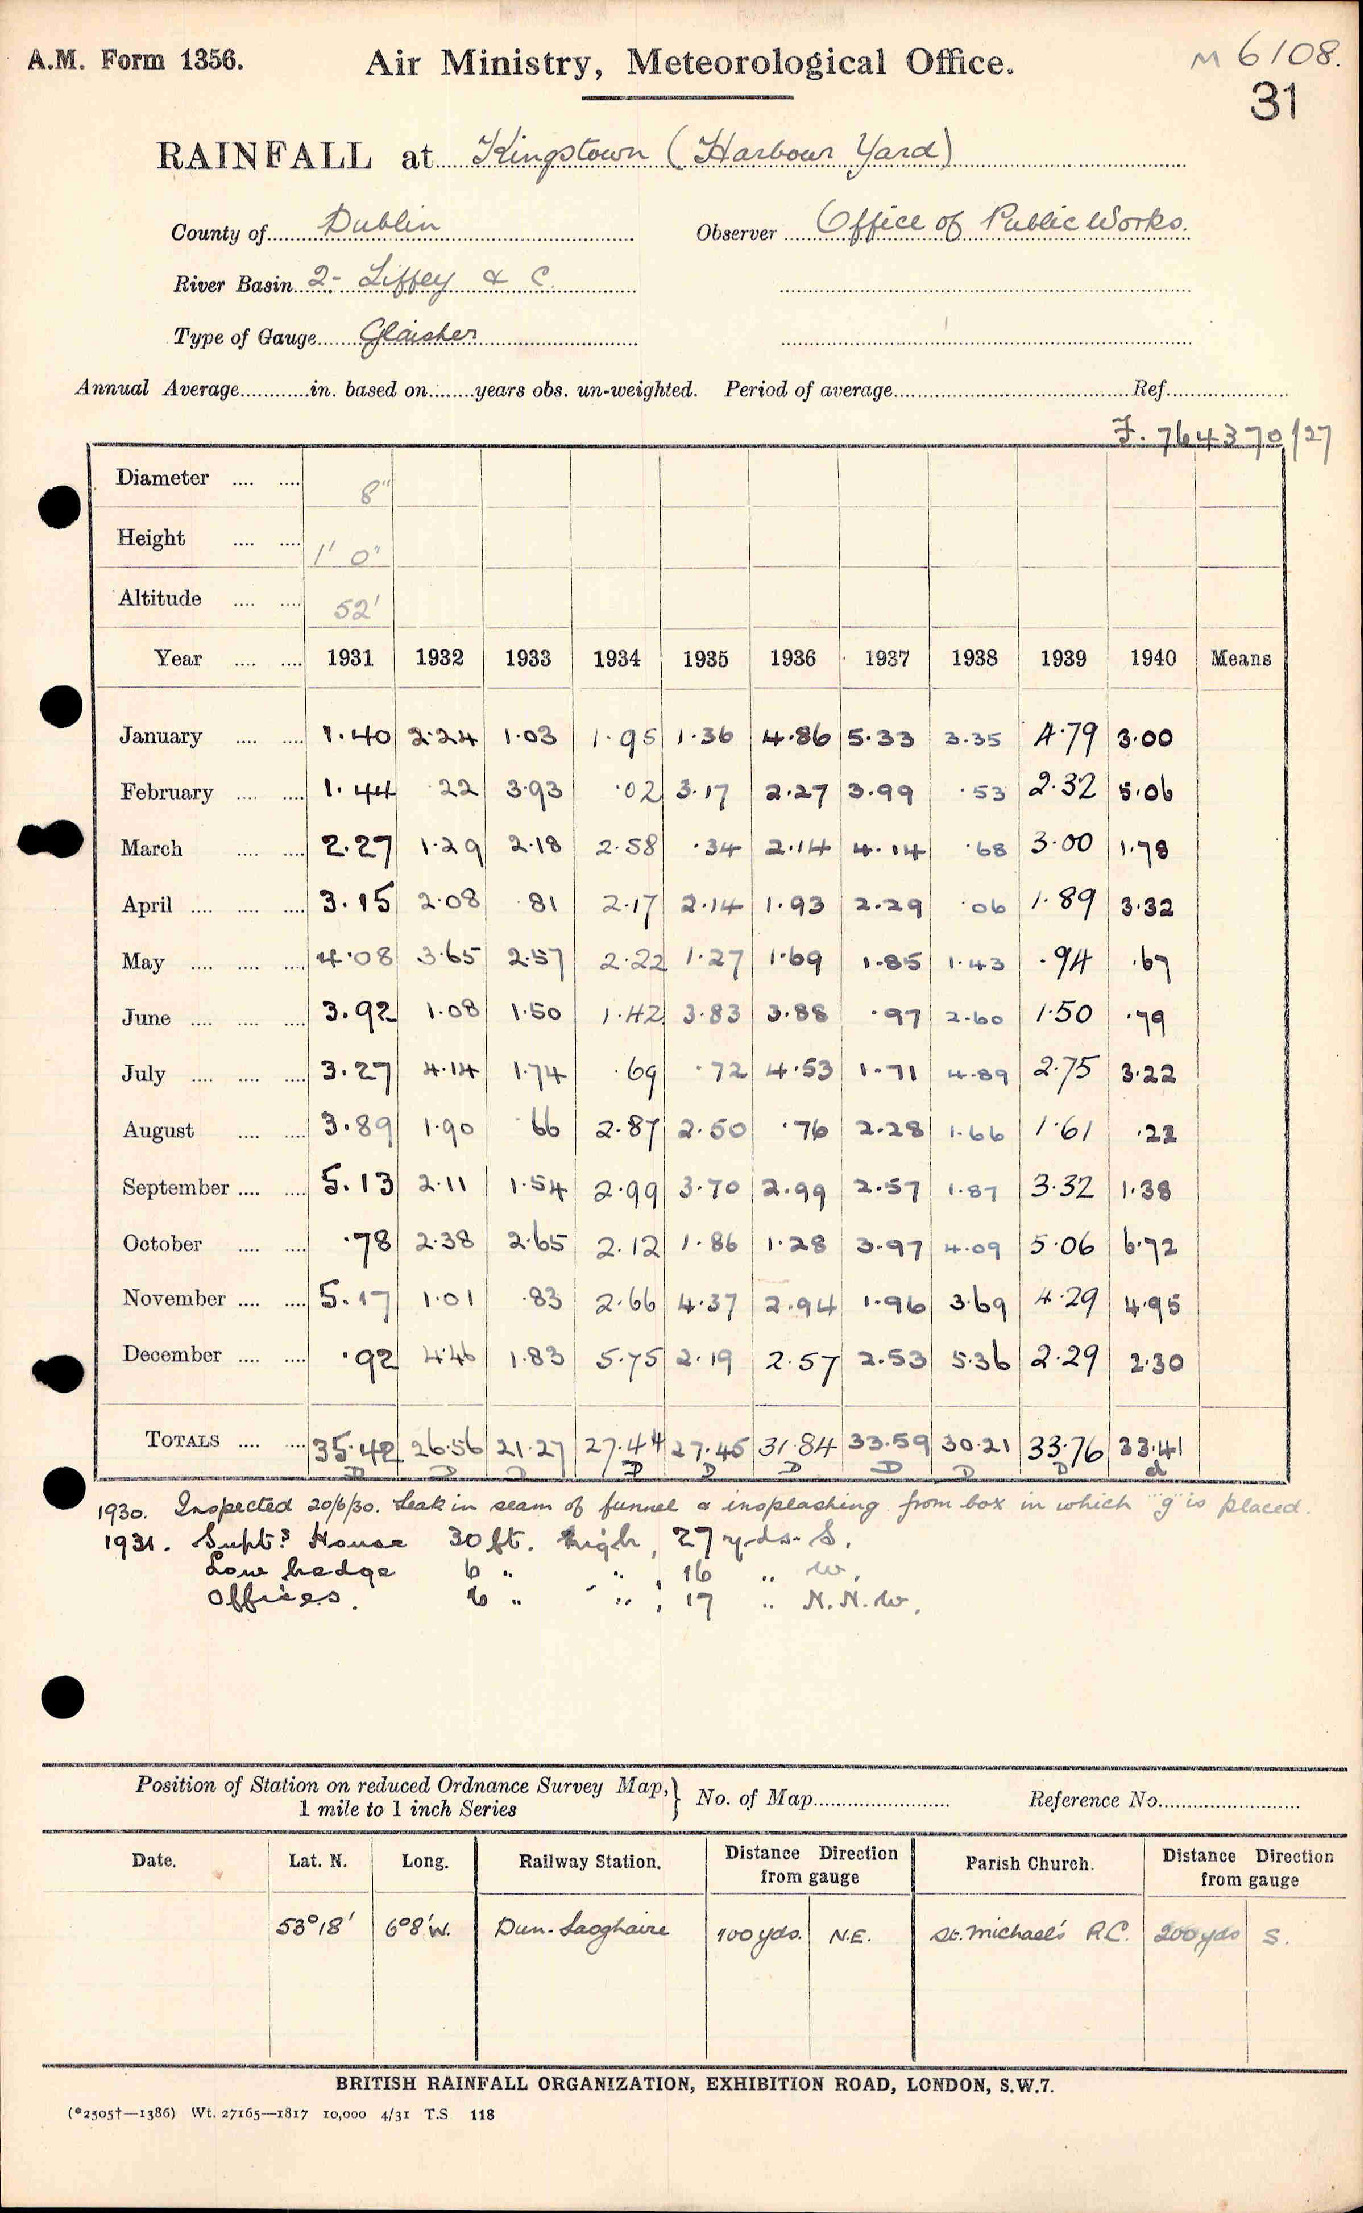 A.M. Form 1356.
Air Ministry, Meteorological Office.
M 6108.
31
RAINFALL at Kingstown (Harbour Yard)
County of Dublin Observer Office of Public Works.
River Basin 2- Liffey & C.
Type of Gauge Glaisher
Annual Average in. based on years obs. un-weighted. Period of average Ref.
F. 764370/27
Diameter 8"
Height 1' 0"
Altitude 52'
Year 1931 1932 1933 1934 1935 1936 1937 1938 1939 1940 Means
January 1.40 2.24 1.03 1.95 1.36 4.86 5.33 3.35 4.79 3.00
February 1.44 .22 3.93 .02 3.17 2.27 3.99 .53 2.32 5.06
March 2.27 1.29 2.18 2.58 .34 2.14 4.14 .68 3.00 1.78
April 3.15 2.08 .81 2.17 2.14 1.93 2.29 .06 1.89 3.32
May 4.08 3.65 2.57 2.22 1.27 1.69 1.85 1.43 .94 .67
June 3.92 1.08 1.50 1.42 3.83 3.88 .97 2.60 1.50 .79
July 3.27 4.14 1.74 .69 .72 4.53 1.71 4.89 2.75 3.22
August 3.89 1.90 .66 2.87 2.50 .76 2.28 1.66 1.61 .22
September 5.13 2.11 1.54 2.99 3.70 2.99 2.57 1.87 3.32 1.38
October .78 2.38 2.65 2.12 1.86 1.28 3.97 4.09 5.06 6.72
November 5.17 1.01 .83 2.66 4.37 2.94 1.96 3.69 4.29 4.95
December .92 4.46 1.83 5.75 2.19 2.57 2.53 5.36 2.29 2.30
TOTALS 35.42 26.56 21.27 27.44 27.45 31.84 33.59 30.21 33.76 33.41
D D D D D D D D D d
1930. Inspected 20/6/30. Leak in seam of funnel & insplashing from box in which "g" is placed.
1931. Supt's House 30 ft. high, 27 yds. S.
Low hedge 6 " " ; 16 " W.
Offices. 6 " " ; 17 " N.N.W.
Position of Station on reduced Ordnance Survey Map, } No. of Map Reference No.
1 mile to 1 inch Series
Date. Lat. N. Long. Railway Station. Distance Direction from gauge Parish Church. Distance Direction from gauge
53°18' 6°8'W. Dun-Laoghaire 100 yds. N.E. St. Michael's R.C. 200 yds S.
BRITISH RAINFALL ORGANIZATION, EXHIBITION ROAD, LONDON, S.W.7.
(*2505†—1386) Wt. 27165—1817 10,000 4/31 T.S 118